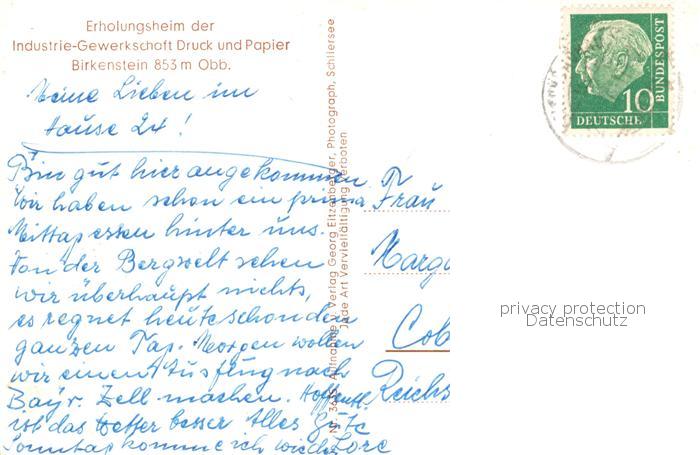 Erholungsheim der
Industrie-Gewerkschaft Druck und Papier
Birkenstein 853 m Obb.
Meine Lieben im
Hause 24!
Bin gut hier angekommen
Wir haben schon ein prima
Mittagessen hinter uns.
Von der Bergwelt sehen
wir überhaupt nichts,
es regnet heute schon den
ganzen Tag. Morgen wollen
wir einen Ausflug nach
Bayr. Zell machen. Hoffentl.
ist das Wetter besser Alles Gute
Sonntag komme ich wieder Lore
Nr. Aufnahme u. Verlag Georg Eitzenberger, Photograph, Schliersee
Jede Art Vervielfältigung verboten
Frau
Marg
Cob
Reichs
10
DEUTSCHE
BUNDESPOST
privacy protection
Datenschutz